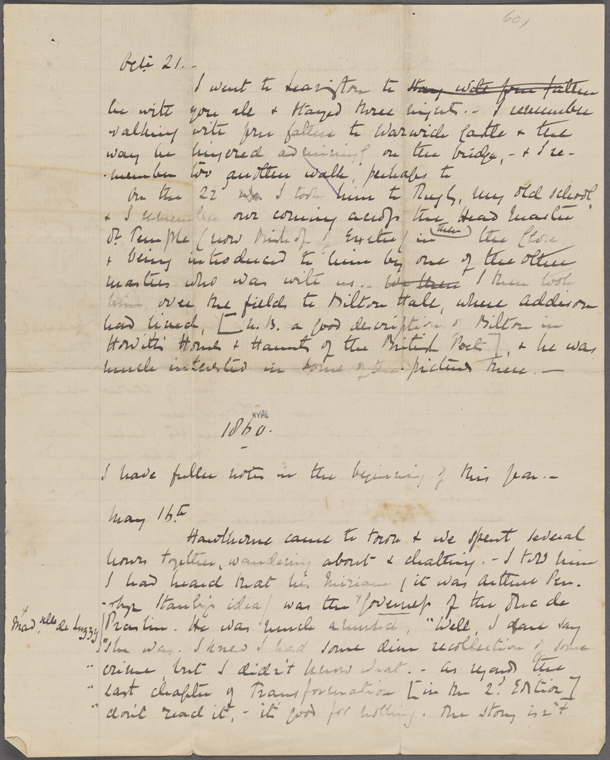 601
Octr 21.-
I went to Leamington to stay with your father
be with you all & stayed three nights. - I remember
walking with your father to Warwick Castle & the
way he lingered admiringly on the bridge, - & I re-
-member too another walk, perhaps to
On the 22nd I took him to Rugby, my old school,
& I remember our coming across the Head Master
Dr Temple (now Bishop of Exeter) in then the Close
& being introduced to him by one of the other
masters who was with us. - We then I then took
him over the fields to Bilton Hall, where Addison
had lived, [N.B. a good description of Bilton in
Howitt's Homes & Haunts of the British Poets], & he was
much interested in some of the pictures there. -
NYPL
1860.
I have fuller notes in the beginning of this year. -
May 16th
Hawthorne came to town & we spent several
hours together, wandering about & chatting. - I told him
I had heard that his Miriam (it was Arthur Pen-
-rhyn Stanley's idea) was the Governess of the Duc de
Mad.elle de Luzzy
Praslin. He was much amused, "Well, I dare say
"she was. I knew I had some dim recollection of some
" crime, but I didn't know what. - As regards the
" last chapter of Transformation [in the 2d Edition]
" don't read it, - it's good for nothing. The story isn't